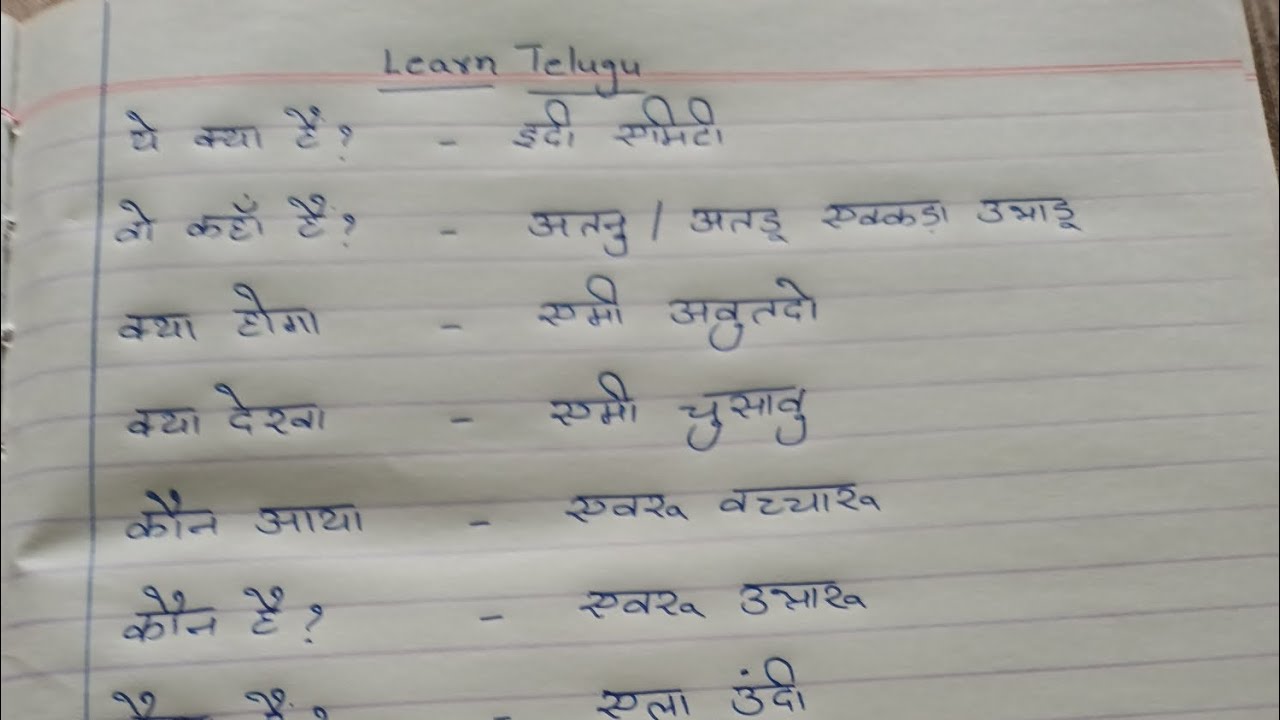 Learn Telugu
ये क्या है? - इदी एमिटी
वो कहाँ है? - अतनु / अतडू एक्कड़ा उन्नाडू
क्या होगा - एमी अवुतदो
क्या देखा - एमी चुसावु
कौन आया - एवरू वच्चारू
कौन है? - एवरू उन्नारू
- एला उंदी